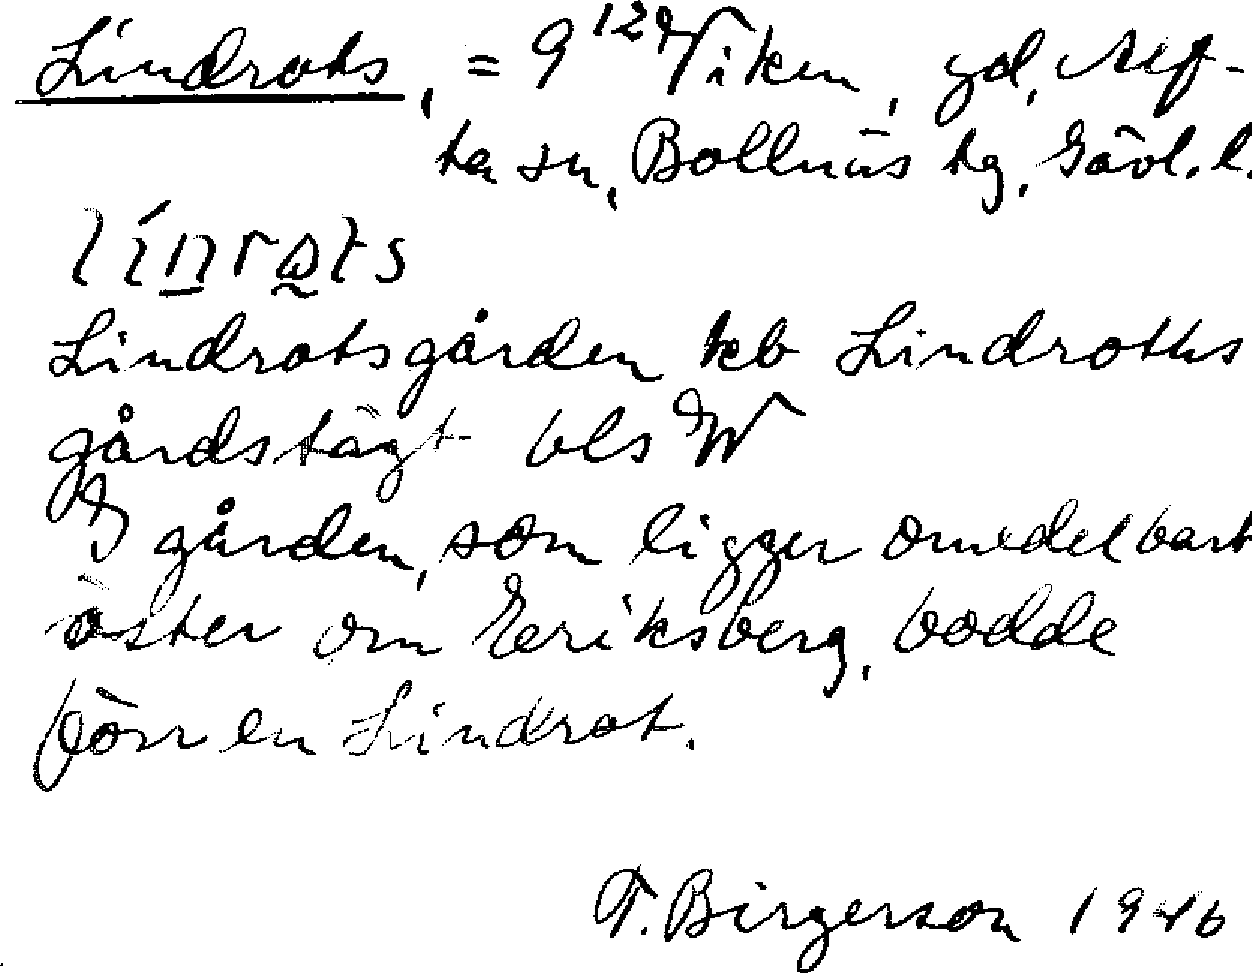 Lindrots, = 9¹² Viken, gd, Alf-
ta sn, Bollnäs tg, Gävl. l.
Lindrotsgården kb Lindroths
gårdstägt bls W
I gården, som ligger omedelbart
öster om Eriksberg, bodde
förr en Lindrot.
T. Birgerson 1946